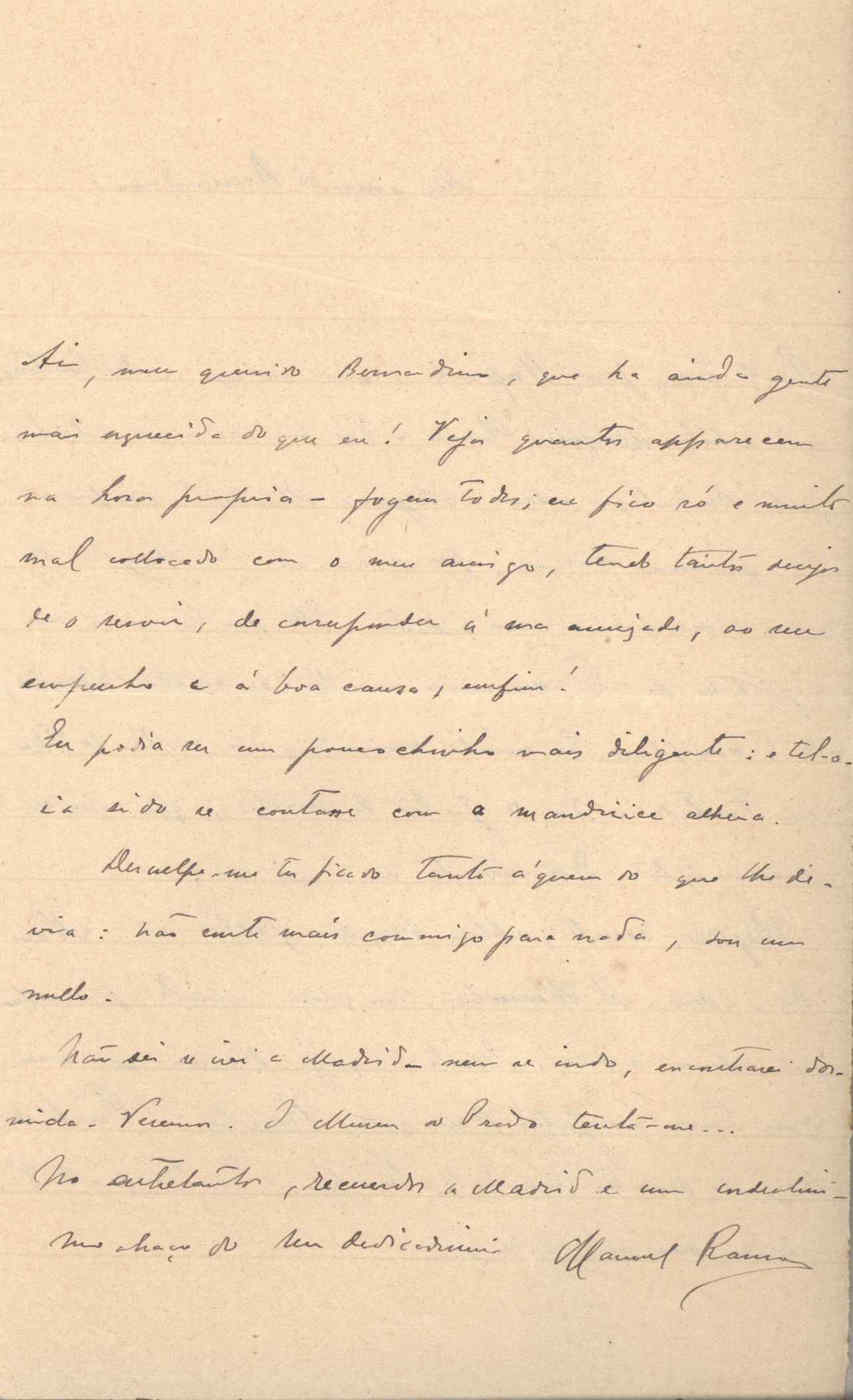 Ai, meu querido Bernardino, que ha ainda gente
mais esquecida do que eu! Veja quantos apparecem
na hora propria – fogem todos; eu fico só e muito
mal collocado com o meu amigo, tendo tantos desejos
de o servir, de corresponder á sua amizade, ao seu
empenho e á boa causa, emfim!
Eu podia ser um poucochinho mais diligente: e tel-o-
ia sido se contasse com a mandriice alheia.
Desculpe-me ter ficado tanto áquem do que lhe de-
via: não conte mais commigo para nada, sou um
nullo.
Não sei se irei a Madrid nem se indo, encontrarei dor-
mida. Veremos. O Museu do Prado tenta-me...
No entretanto, recuerdos a Madrid e um cordealissi-
mo abraço do seu dedicadissimo Manuel Ramos